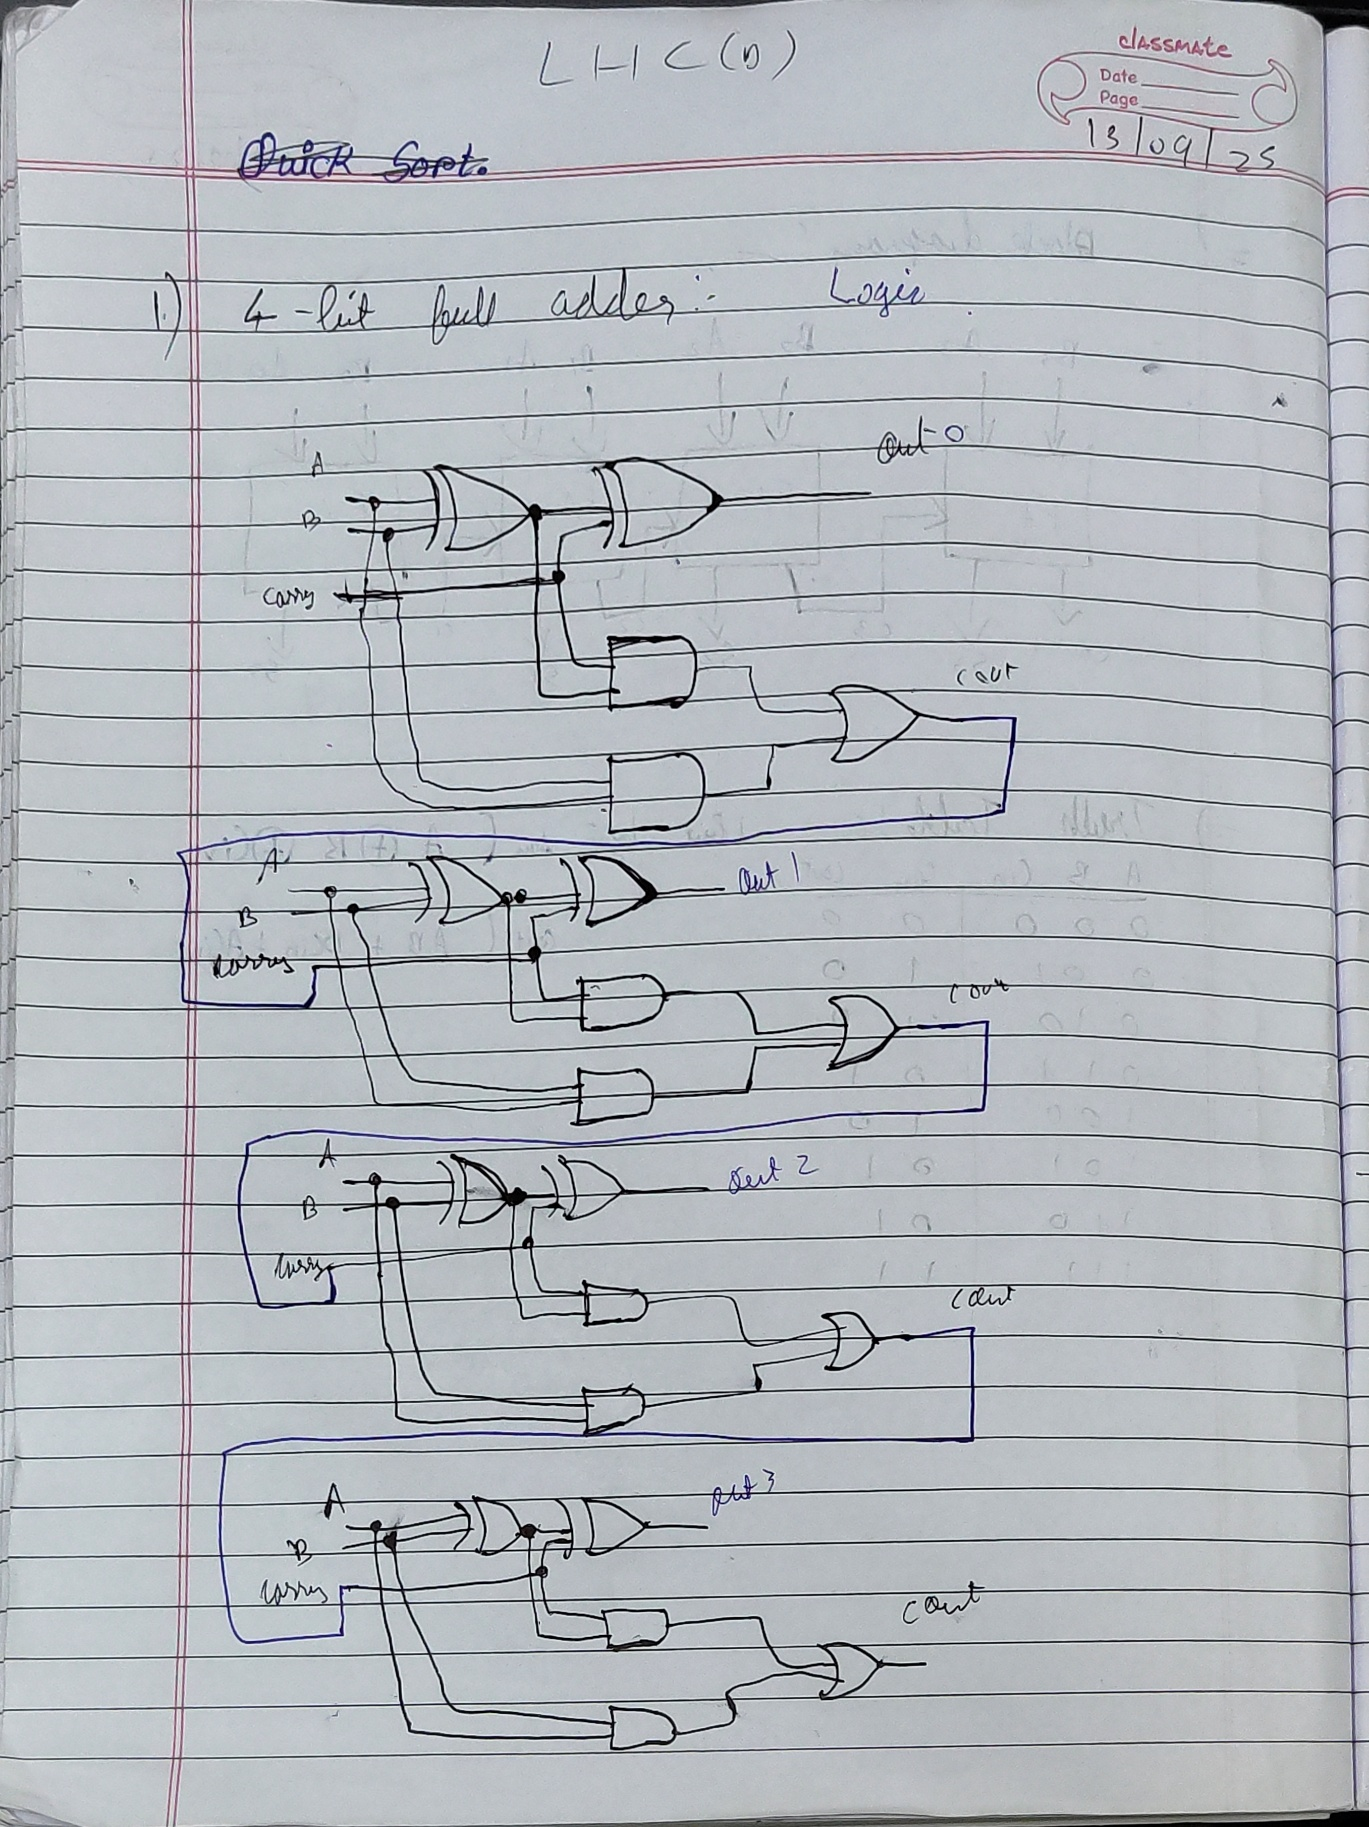 LHC(D)
classmate
Date
Page
13/09/25
Quick Sort.
1.) 4-bit full adder:- Logic
A
out 0
B
carry
cout
A
out 1
B
carry
cout
A
out 2
B
carry
cout
A
out 3
B
carry
cout